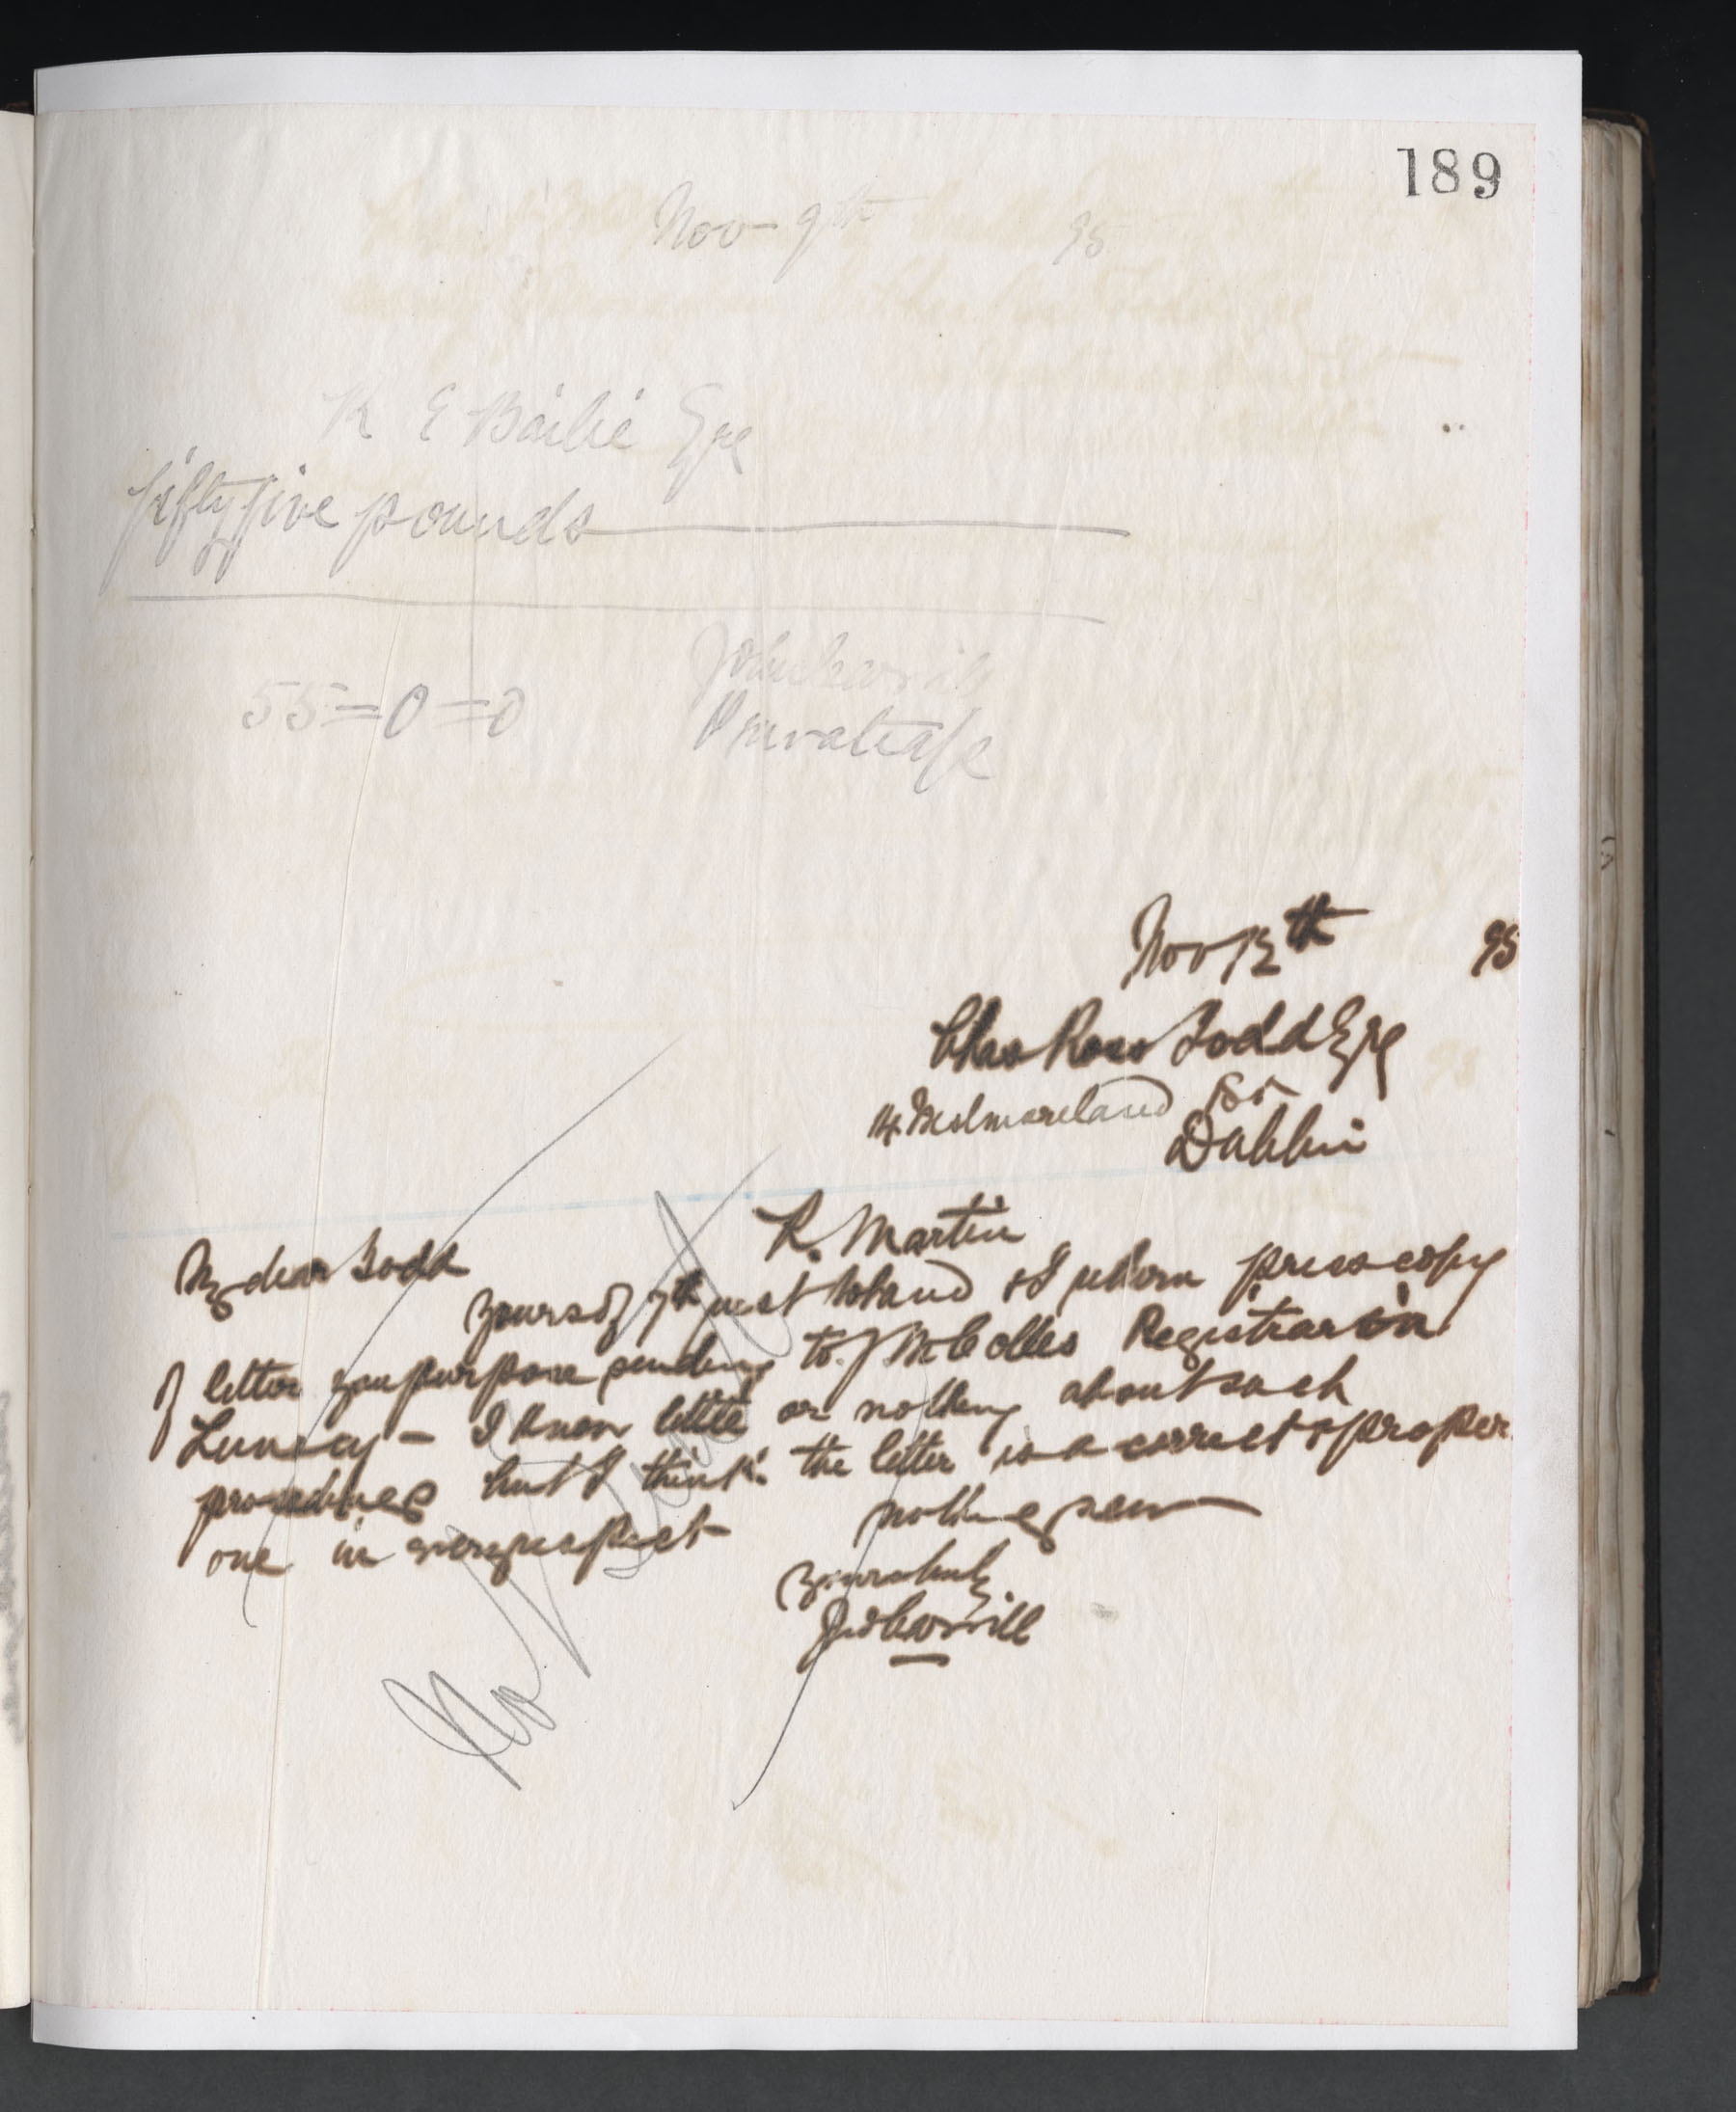 189
Nov 9th 95
R E Bailie Esqe
fifty five pounds
55=0=0
Private a/c
Nov 12th 95
Chas Ross Todd Esqe
14 Westmoreland St
Dublin
R. Martin
My dear Todd
Yours of 7th inst to hand & I return press copy
of letter you purpose sending to J M Colles Registrar in
Lunacy - I know little or nothing about such
procedures but I think the letter is a correct & proper
one in every respect
nothing new
Yours truly
No